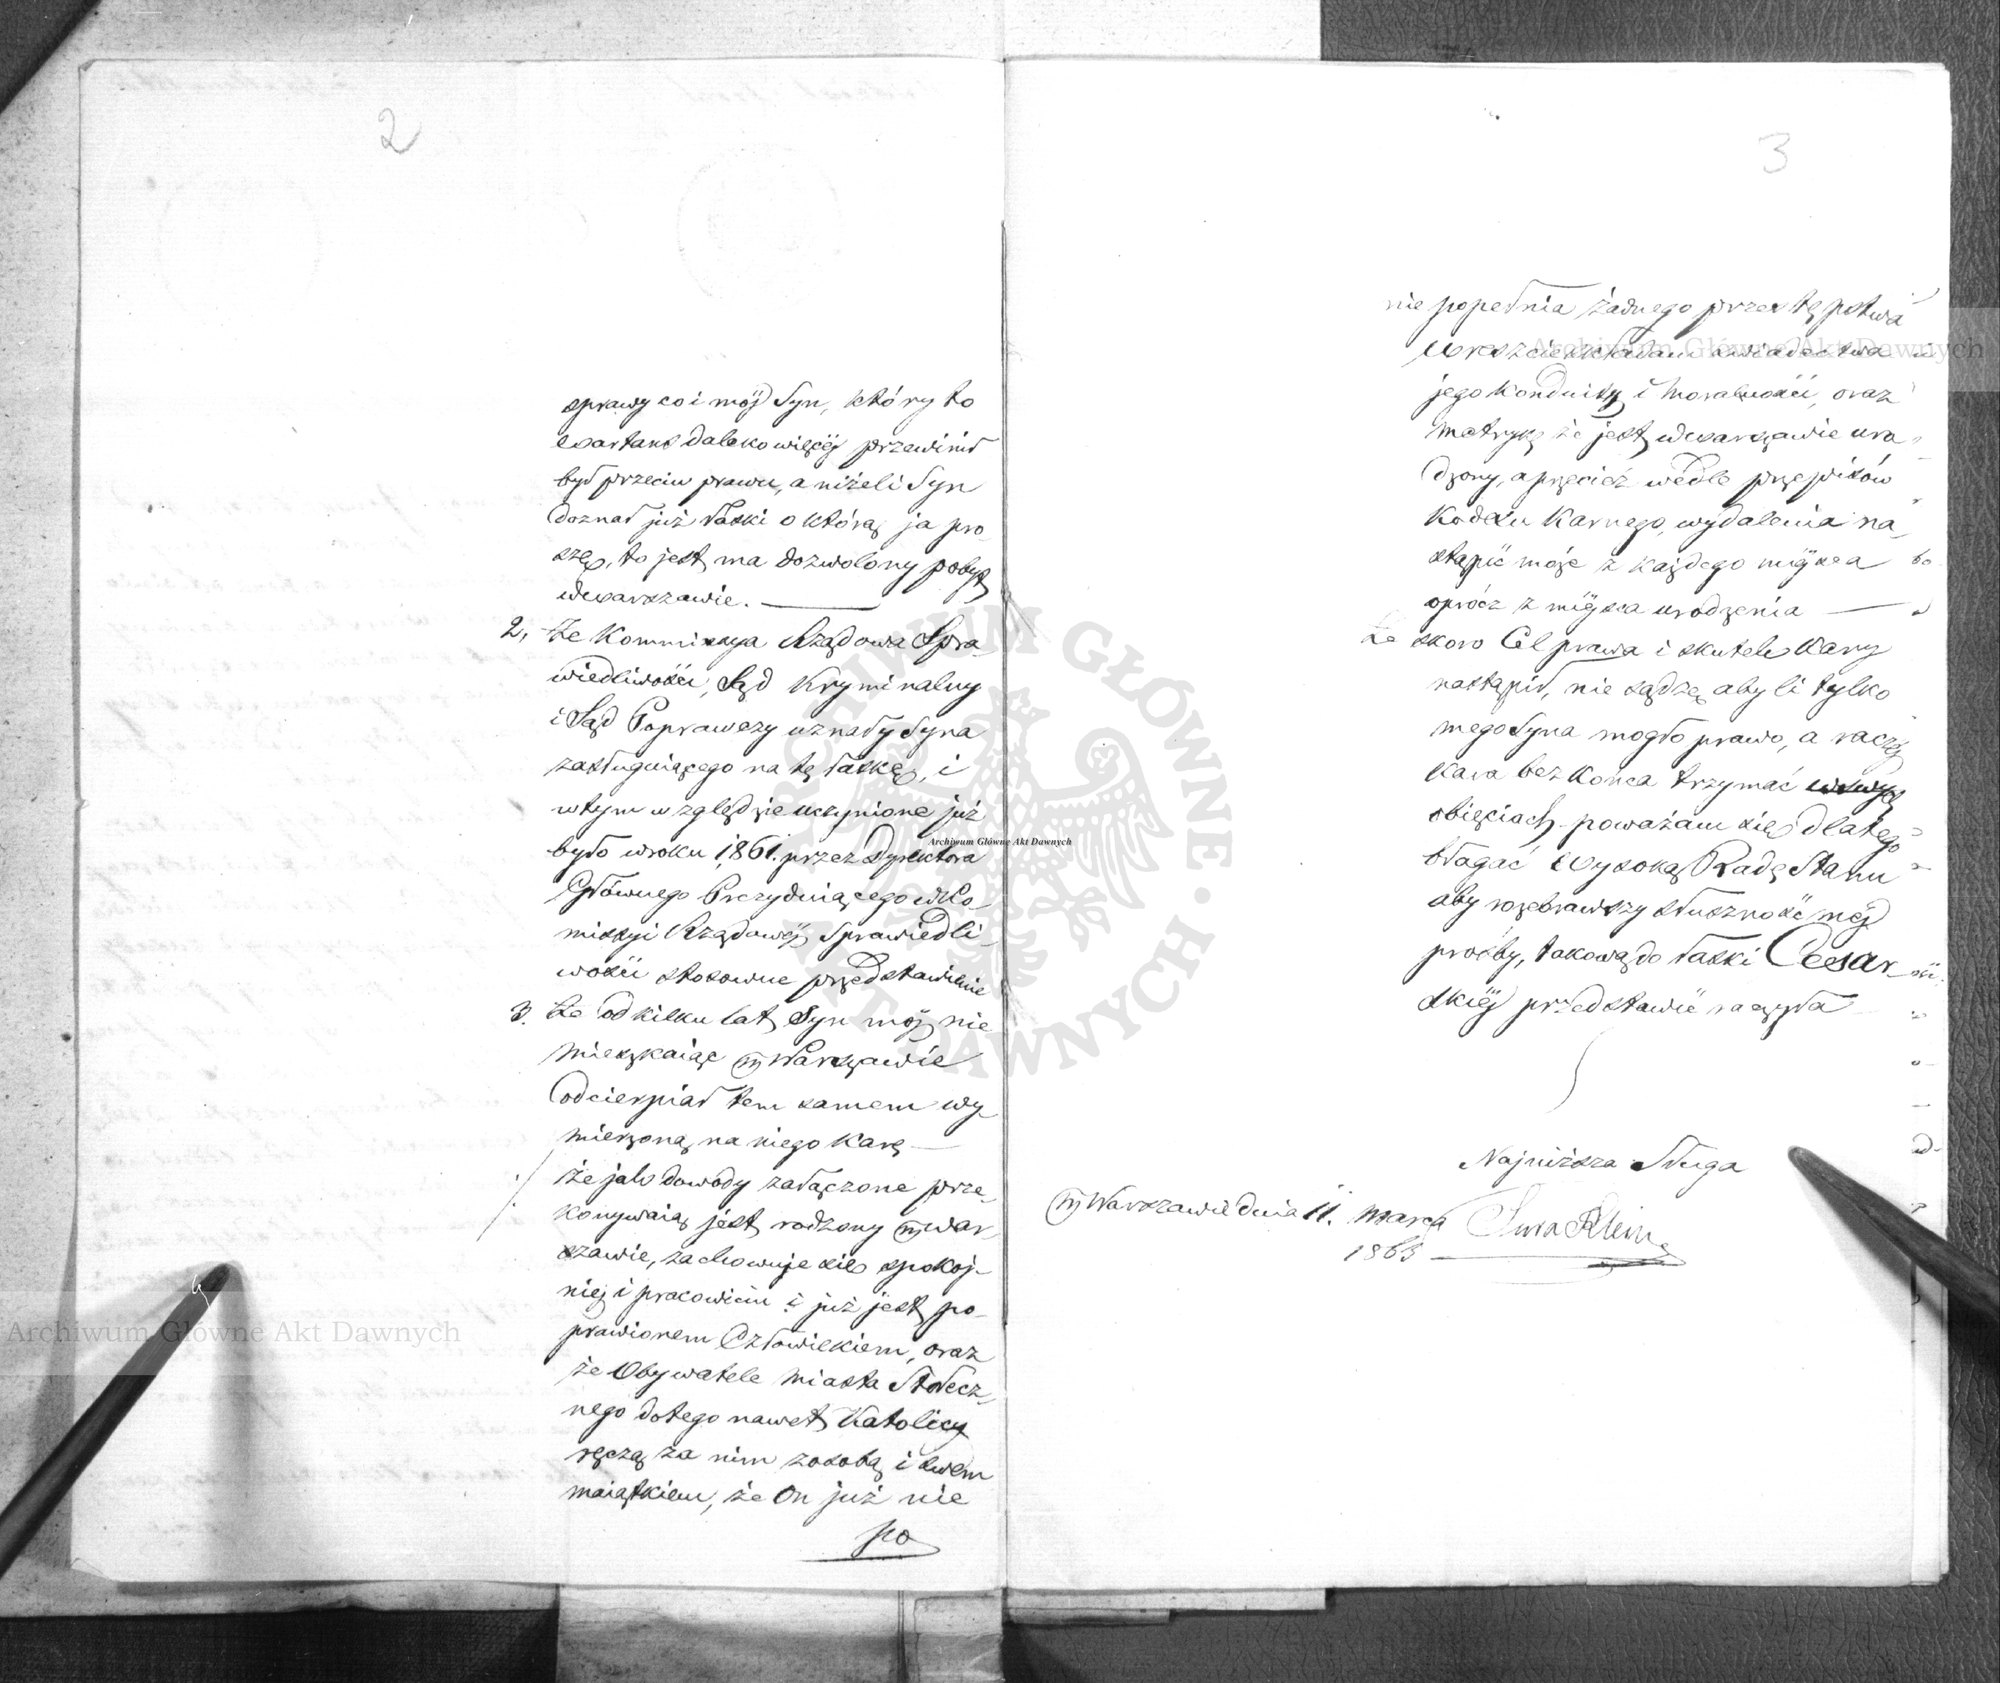 2
sprawy co i mój Syn, który to
Wartans daleko więcéj przewinił
był przeciw prawu, a niżeli Syn
doznał już łaski o którą ja pro
szę, to jest ma dozwolony pobyt
w Warszawie.
2, Że Kommissya Rządowa Spra
wiedliwości, Sąd Kryminalny
i Sąd Poprawczy uznały Syna
zasługuiącego na tę łaskę, i
w tym względzie uczynione już
było w roku 1861. przez Dyrektora
Głównego Prezyduiącego w Ko
missyi Rządowéj Sprawiedli
wości stosowne przedstawienie
3. Że od kilku lat Syn mój nie
mieszkaiąc w Warszawie
odcierpiał tem samem wy
mierzoną na niego karę
że jak dowody załączone prze
konywaią jest rodzony w War
szawie, zachowuje się spokoj
niej i pracowicie i już jest po
prawionem Człowiekiem, oraz
że Obywatele Miasta Stołecz
nego do tego nawet Katolicy
ręczą za nim z osobą i swem
maiątkiem, że On już nie
po
3
nie popełnia żadnego przestępstwa
Wreszcie składam świadectwa
jego Konduity i moralności, oraz
metrykę że jest w Warszawie uro
dzony, a przecież wedle przepisów
Kodexu Karnego, wydalenia na
stąpić może z każdego miejsca
oprócz z miejsca urodzenia
Że skoro Cel prawa i skutek Kary
nastąpił, nie sądzę aby li tylko
mego Syna mogło prawo, a raczéj
Kara bez końca trzymać w swych
obięciach poważam się dlatego
błagać Wysoką Radę Stanu
aby rozebrawszy słuszność méj
prośby, takową do łaski Cesar
skiéj przedstawić raczyła
Najniższa Sługa
w Warszawie dnia 11. Marca
Sura Klein
1863
Archiwum Główne Akt Dawnych
Archiwum Główne Akt Dawnych
Archiwum Główne Akt Dawnych
ARCHIWUM GŁÓWNE · AKT DAWNYCH ·